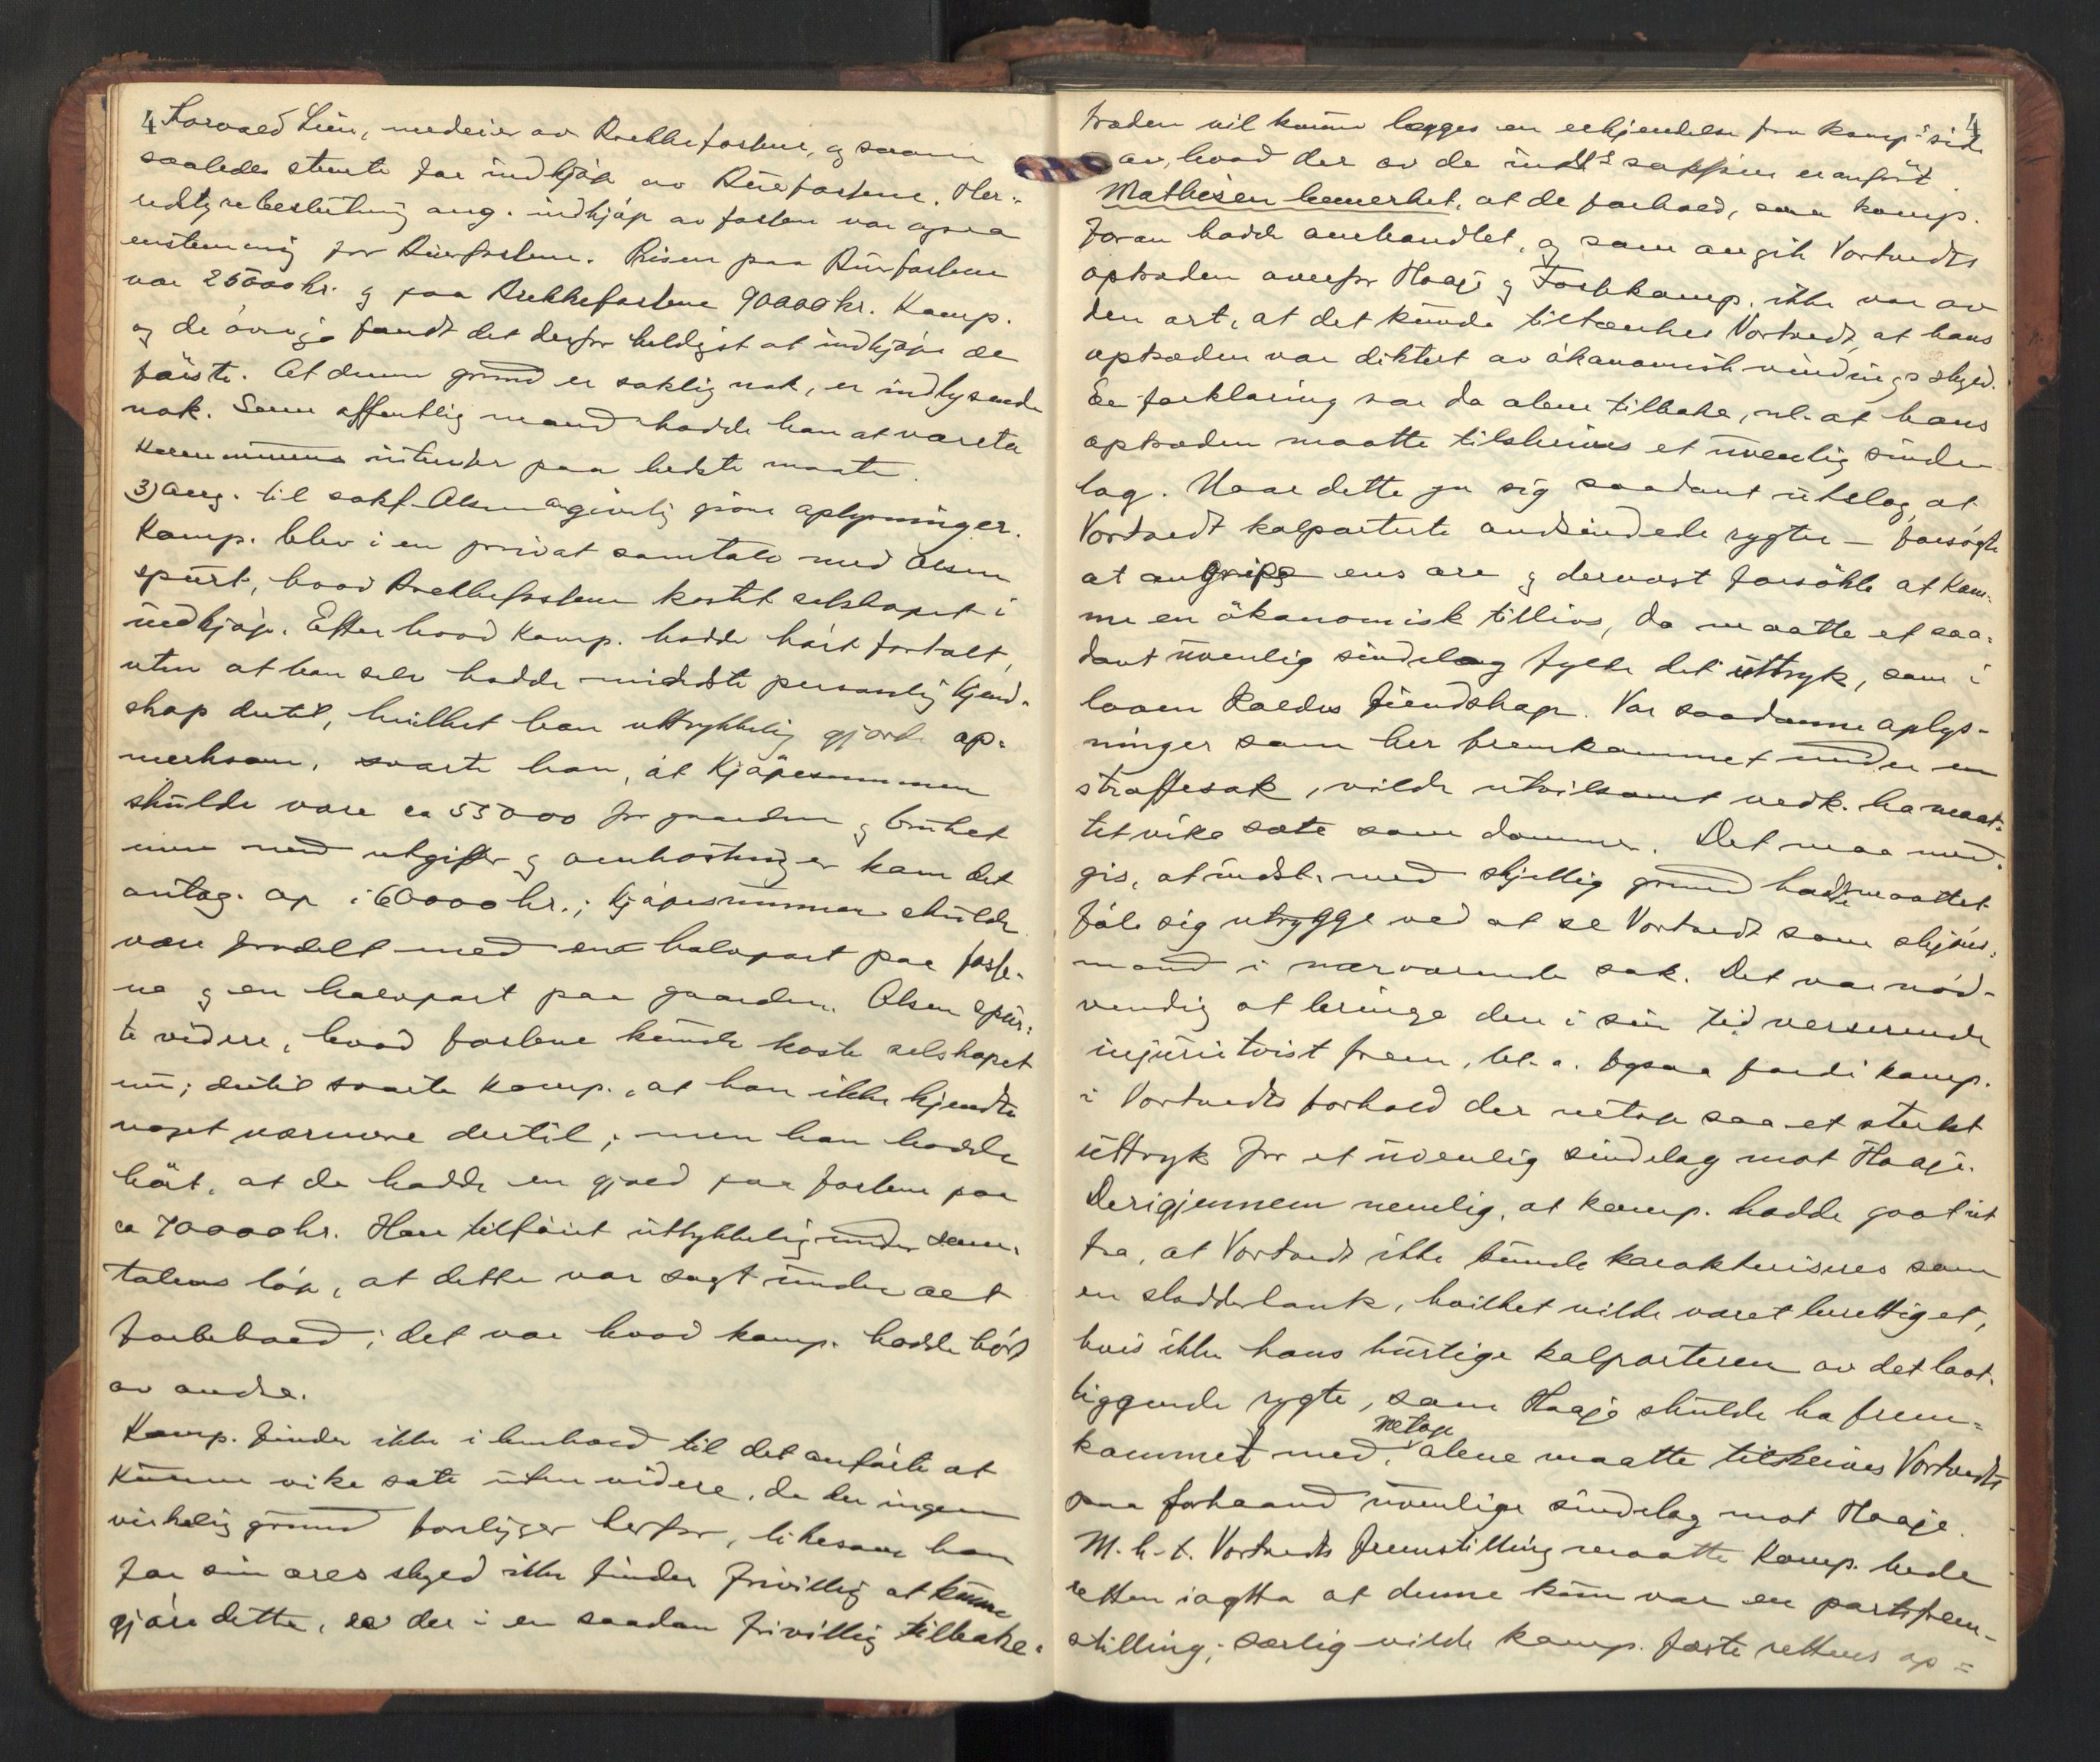 4 Torvald Lien, medeier av Rækkefossene, og saavel
saaledes stemte for indkjöp av Ruefossene. Her-
redstyrebeslutning ang. indkjöp av fossen var ogsaa
enstemmig for Ruefossene. Prisen paa Ruefossene
var 25000 kr. og paa Rækkefossene 90000 kr. Komp.
og de övrige fandt det derfor heldigst at indkjöpe de
förste. At denne grund er saklig nok, er indlysende
nok. Som offentlig mand hadde han at vareta
kommunens interesser paa bedste maate.
3) Ang. til sakf. Olsen angivelig givne oplysninger.
Komp. blev i en privat samtale med Olsen
spurt, hvad Rækkefossene kostet selskapet i
indkjöp. Efter hvad Komp. hadde hört fortalt,
uten at han selv hadde mindste personlig kjend-
skap dertil, hvilket han uttrykkelig gjorde op-
merksom, svarte han, at kjöpesummen
skulde være ca 55000 for gaarden og bruket
men med utgifter og omkostninger kom det
antag. op i 60000 kr.; kjöpesummen skulde
være fordelt med en halvpart paa fosse-
ne og en halvpart paa gaarden. Olsen spur-
te videre, hvad fossene kunde koste selskapet
nu; dertil svarte Komp., at han ikke kjendte
noget nærmere dertil; men han hadde
hört, at de hadde en gjæld paa fossene paa
ca 70000 kr. Han tilföiet uttrykkelig under sam-
talens löp, at dette var sagt under alt
forbehold; det var hvad Komp. hadde hört
av andre.
Komp. finder ikke i henhold til det anförte at
kunne vike sæte uten videre, da der ingen
virkelig grund forligger herfor, likesom han
for sin æres skyld ikke finder frivillig at kunne
gjöre dette, da der i en saadan frivillig tilbake-
4
træden vil kunne lægges en erkjendelse fra Komp's side
av, hvad der av de indst's sakförer er anfört.
Mathiesen bemerket, at de forhold, som Komp.
foran hadde omhandlet, og som angik Vortvedts
optræden overfor Haaje og Foskkomp. ikke var av
den art, at det kunde tiltænkes Vortvedt, at hans
optræden var diktert av ökonomisk vindings skyld.
En forklaring var da alene tilbake, nl. at hans
optræden maatte tilskrives et uvenlig sinde-
lag. Naar dette ga sig saadant utslag, at
Vortvedt kolporterte ondsindede rygter – forsögte
at angripe ens ære og dernæst forsökte at kom-
me en ökonomisk tillivs, da maatte et saa-
dant uvenlig sindelag fylle det uttryk, som i
loven kaldes fiendskap. Var saadanne oplys-
ninger som her fremkommet under en
straffesak, vilde utvilsomt vedk. ha maat-
tet vike sæte som dommer. Det maa med-
gis, at indst. med skjellig grund hadde maattet
föle sig utrygge ved at se Vortvedt som skjöns-
mand i nærværende sak. Det var nöd-
vendig at bringe den i sin tid verserende
injurietvist frem, bl. a. ogsaa fordi Komp.
i Vortvedts forhold der netop saa et sterkt
uttryk for et uvenlig sindelag mot Haaje.
Derigjennem nemlig, at Komp. hadde gaat ut
fra, at Vortvedt ikke kunde karakteriseres som
en sladderhank, hvilket vilde været berettiget,
hvis ikke hans hurtige kolporteren av det laat-
liggende rygte, som Haaje skulde ha frem-
kommet med, netop alene maatte tilskrives Vortvedts
paa forhaand uvenlige sindelag mot Haaje.
M. h. t. Vortvedts fremstilling maatte Komp. bede
retten iagtta at denne kun var en partsfrem-
stilling; særlig vilde Komp. fæste rettens op-